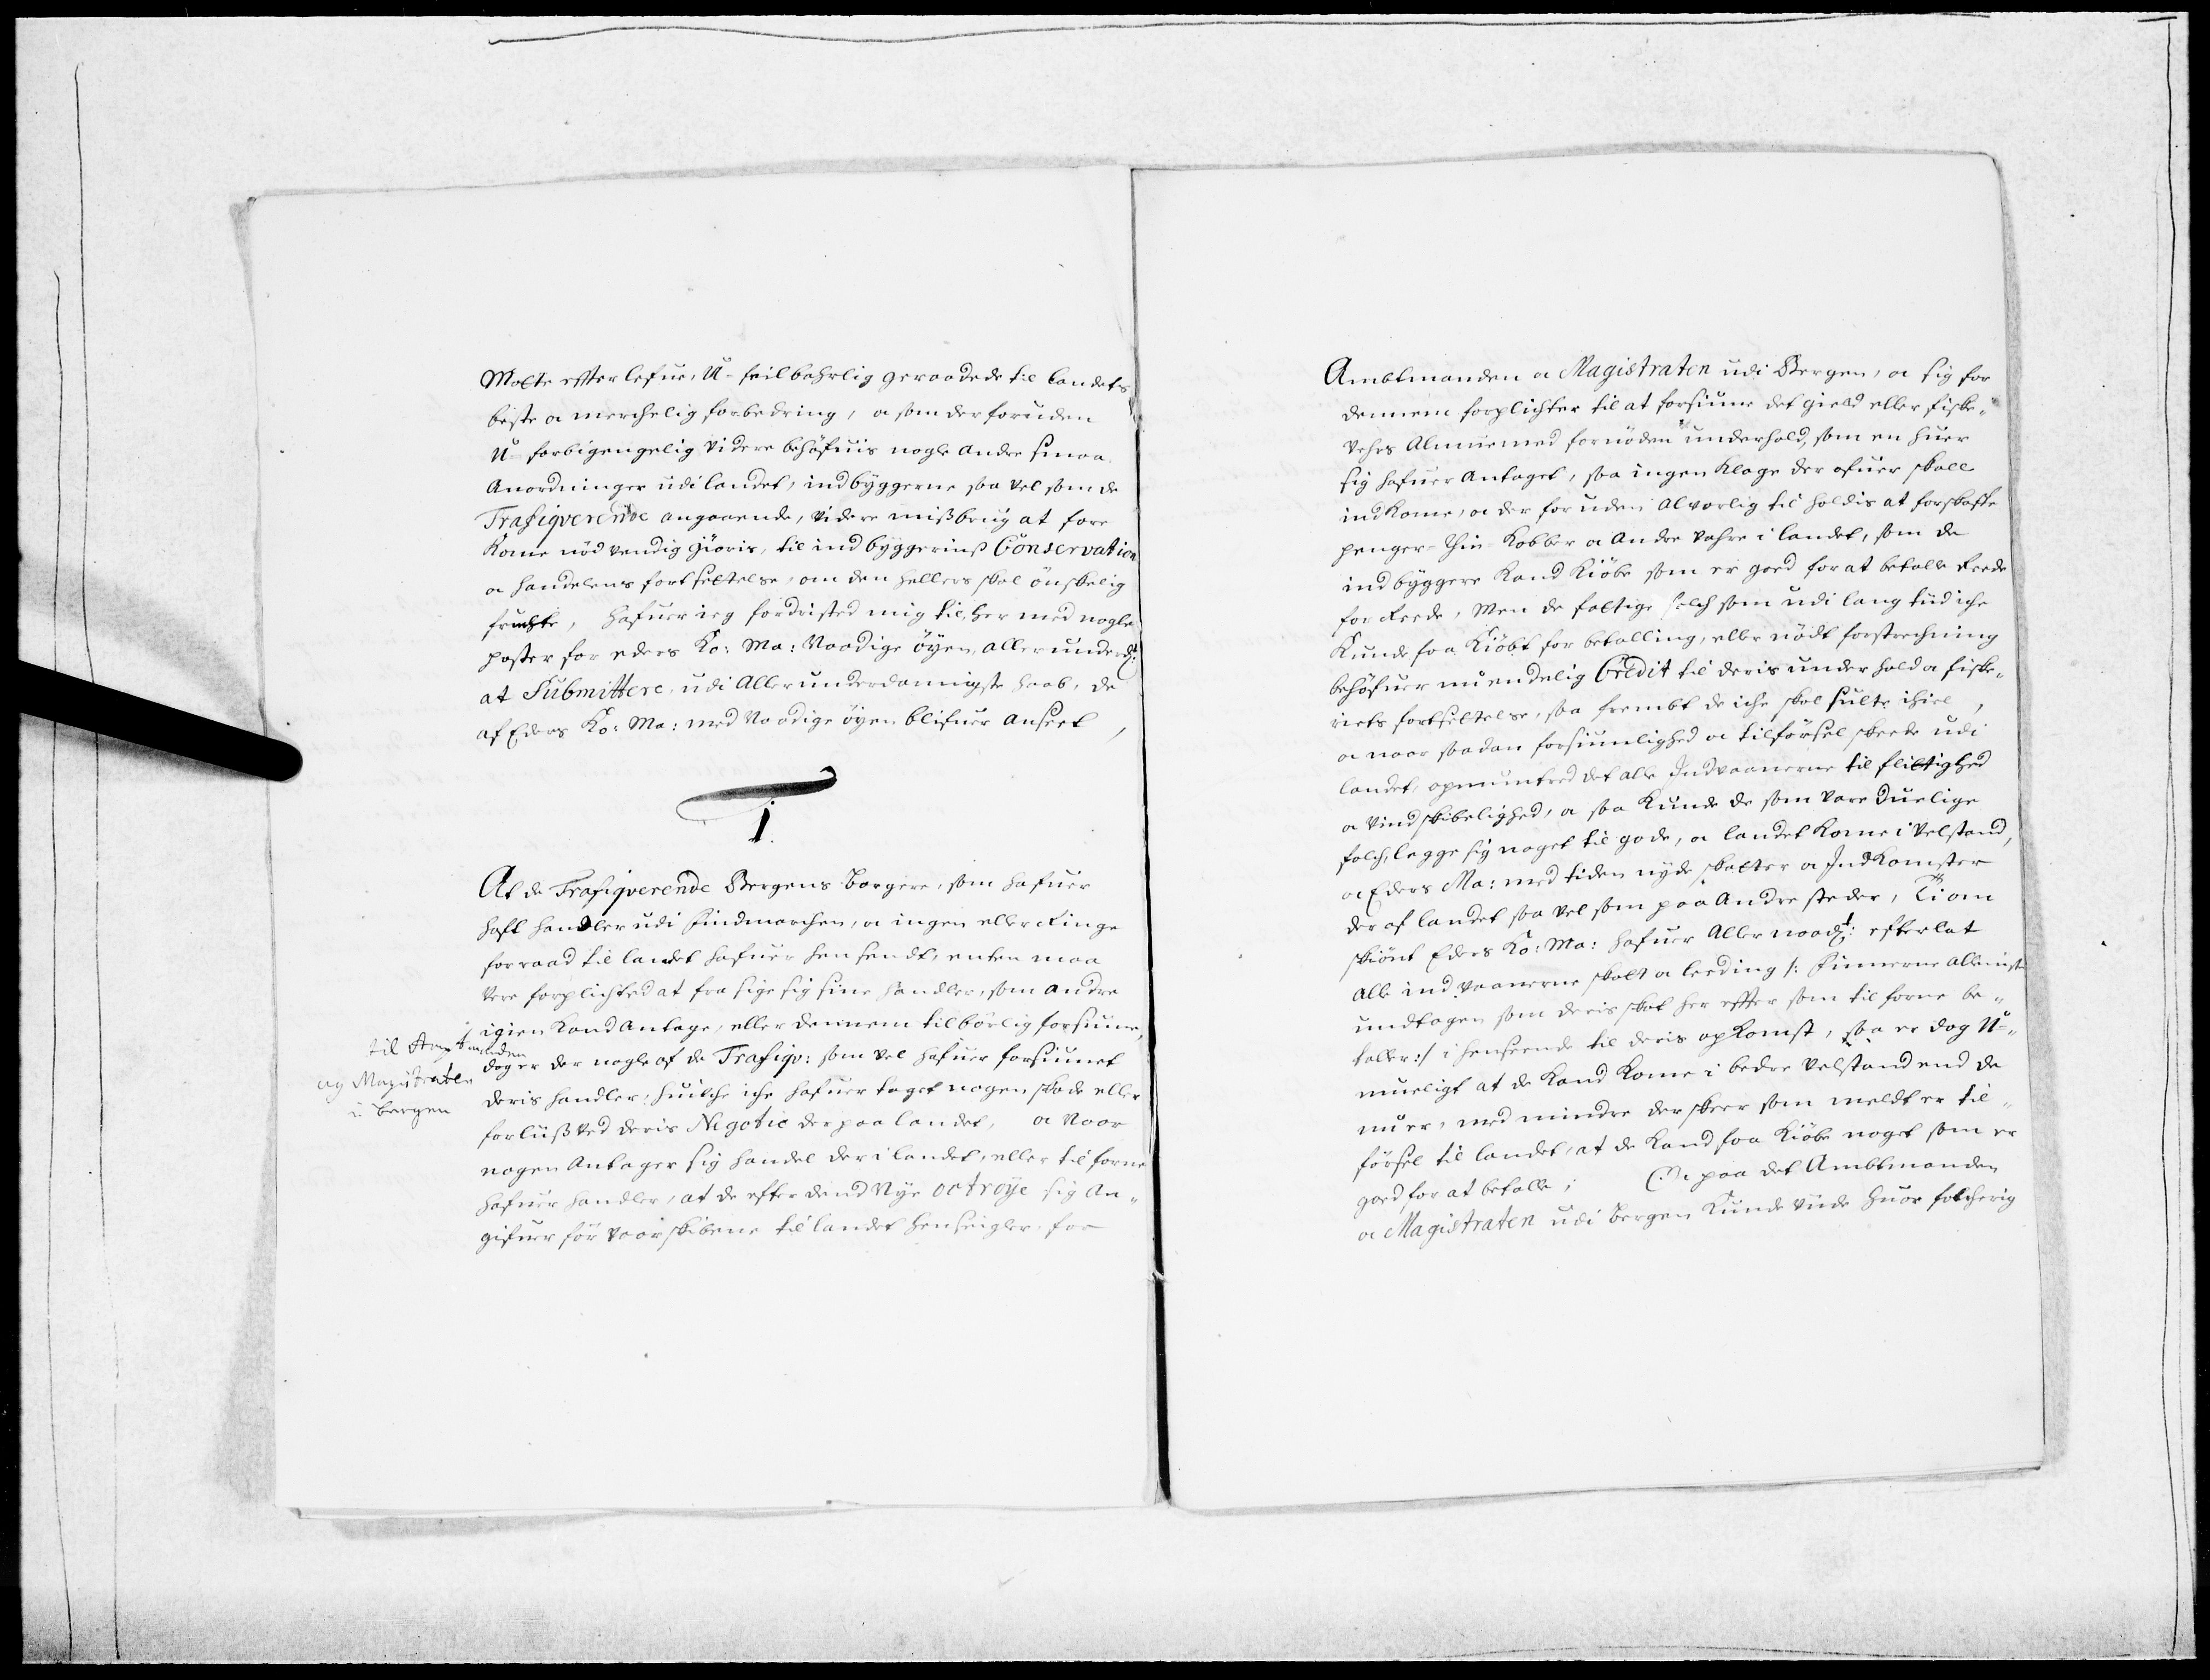 Motte effter lefue, U-feilbahrlig geraadede til Landets
beste a merchelig forbedring, a som der foruden
U-forbigengelig videre behøfuis nogle andre smaa
Anordninger udi landet, indbyggerne saa vel som de
Trafiqverende angaaende, videre missbrug at fore
kome nødvendig giøris, til indbyggerins Conservation
a handelens fortsettelse, om den hellers skal ønskelig
fruchte, hafuer ieg fordristed mig til, her med nogle
poster for eders Ko: Ma: Naadige øyen, aller underdt:
at Submittere, udi Allerunderdannigste haab, de
af Eders Ko: Ma: med Naadige øyen blifuer anseet,
1.
At de Trafiqverende Bergens borgere, som hafuer
haft handler udi Findmarchen, a ingen eller Ringe
forraad til landet hafuer hensendt, enten maa
vere forplichted at fra sige sig sine handler, som andre
igien kand antage, eller dennem tilbørlig forsiune,
dog er der nogle af de Trafiqv: som vel hafuer forsiunet
deris handler, huilche iche hafuer taget nogen skade eller
forliiss ved deris Negotie der paa landet, a Naar
nogen Antager sig handel der i landet, eller til forne
hafuer handler, at de efter dend Nye octroye sig An-
gifuer før vaar skibene til landet henseigler for
til Amptmanden
og Magistraten
i Bergen
Ambtmanden a Magistraten udi Bergen, a sig for
dennem forplichter til at forsiune det gield eller fiske-
vehrs Almue med fornøden underhold, som en huer
sig hafuer Antaget, saa ingen klage der ofuer skall
indkome, a der foruden Alvorlig til holdis at forskaffe
penger-Thin-Kobber a Andre vahre i landet, som de
indbyggere kand kiøbe som er goed for at betalle Reede
for Reede, Men de fattige folch som udi lang tiid iche
kunde faa kiøbt for betalling, eller nødt forstrechning
behøfuer nu endelig Credit til deris underhold a fiske-
riets fortsettelse, saa frembt de iche skal sulte ihiel,
a naar saadan forsiunlighed a tilførsel skeede udi
landet, opmuntred det alle Indvaanerne til flittighed
a vindskibelighed, a saa kunde de som vare duelige
folch, legge sig noget til gode, a landet kome i velstand,
a Eders Ma: med tiden nyde skatter a Indkomster
der af landet saa vel som paa Andre steder, Ti om
skiønt Eders Ko: Ma: hafuer Aller naadt: efterlat
alle indvaanerne skatt a leeding /: Finnerne alleniste
undtagen som deris skat her effter som til forne be-
taller :/ i henseende til deris opkomst, saa er dog U-
mueligt at de kand kome i bedre velstand end de
nu er, med mindre der skeer som meldt er til-
førsel til landet, at de kand faa kiøbe noget som er
goed for at betalle; Oc paa det Ambtmanden
a Magistraten udi Bergen kunde viide huor folcherig